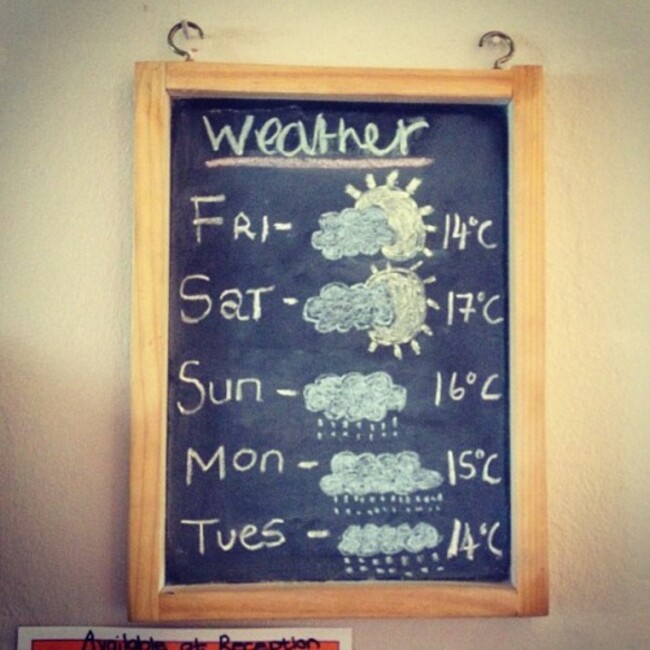 Weather
FRI- 14°C
Sat - 17°C
Sun - 16°C
Mon - 15°C
Tues - 14°C
Available at Reception